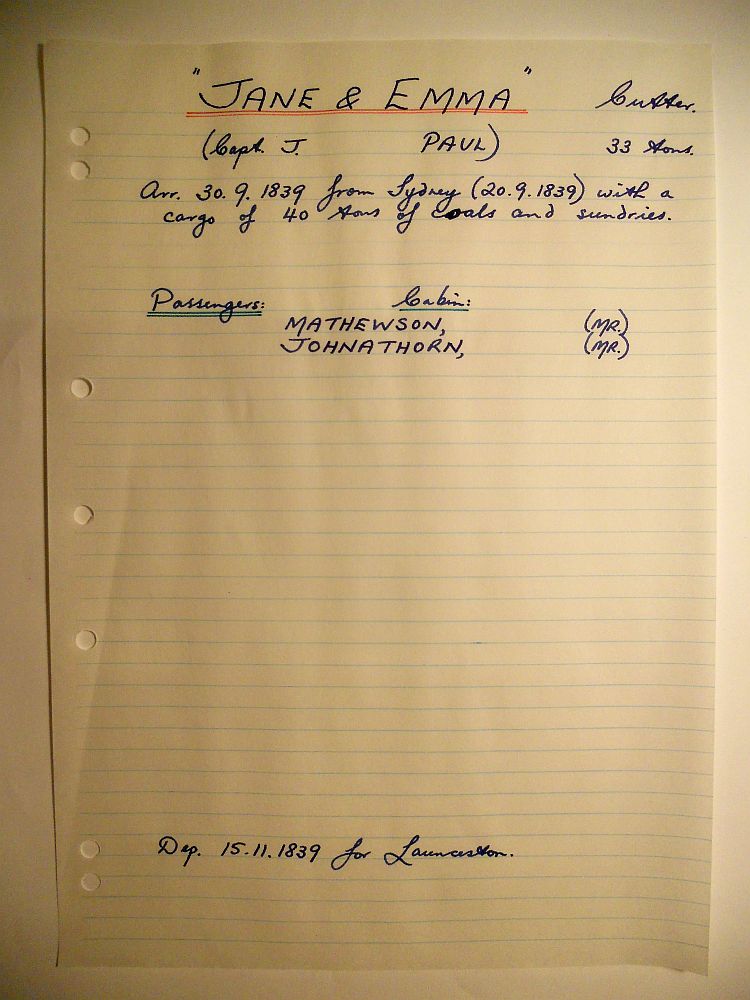 "JANE & EMMA" Cutter.
(Capt. J. PAUL) 33 tons.
Arr. 30.9.1839 from Sydney (20.9.1839) with a
cargo of 40 tons of coals and sundries.
Passengers: Cabin:
MATHEWSON, (MR.)
JOHNATHORN, (MR.)
Dep. 15.11.1839 for Launceston.